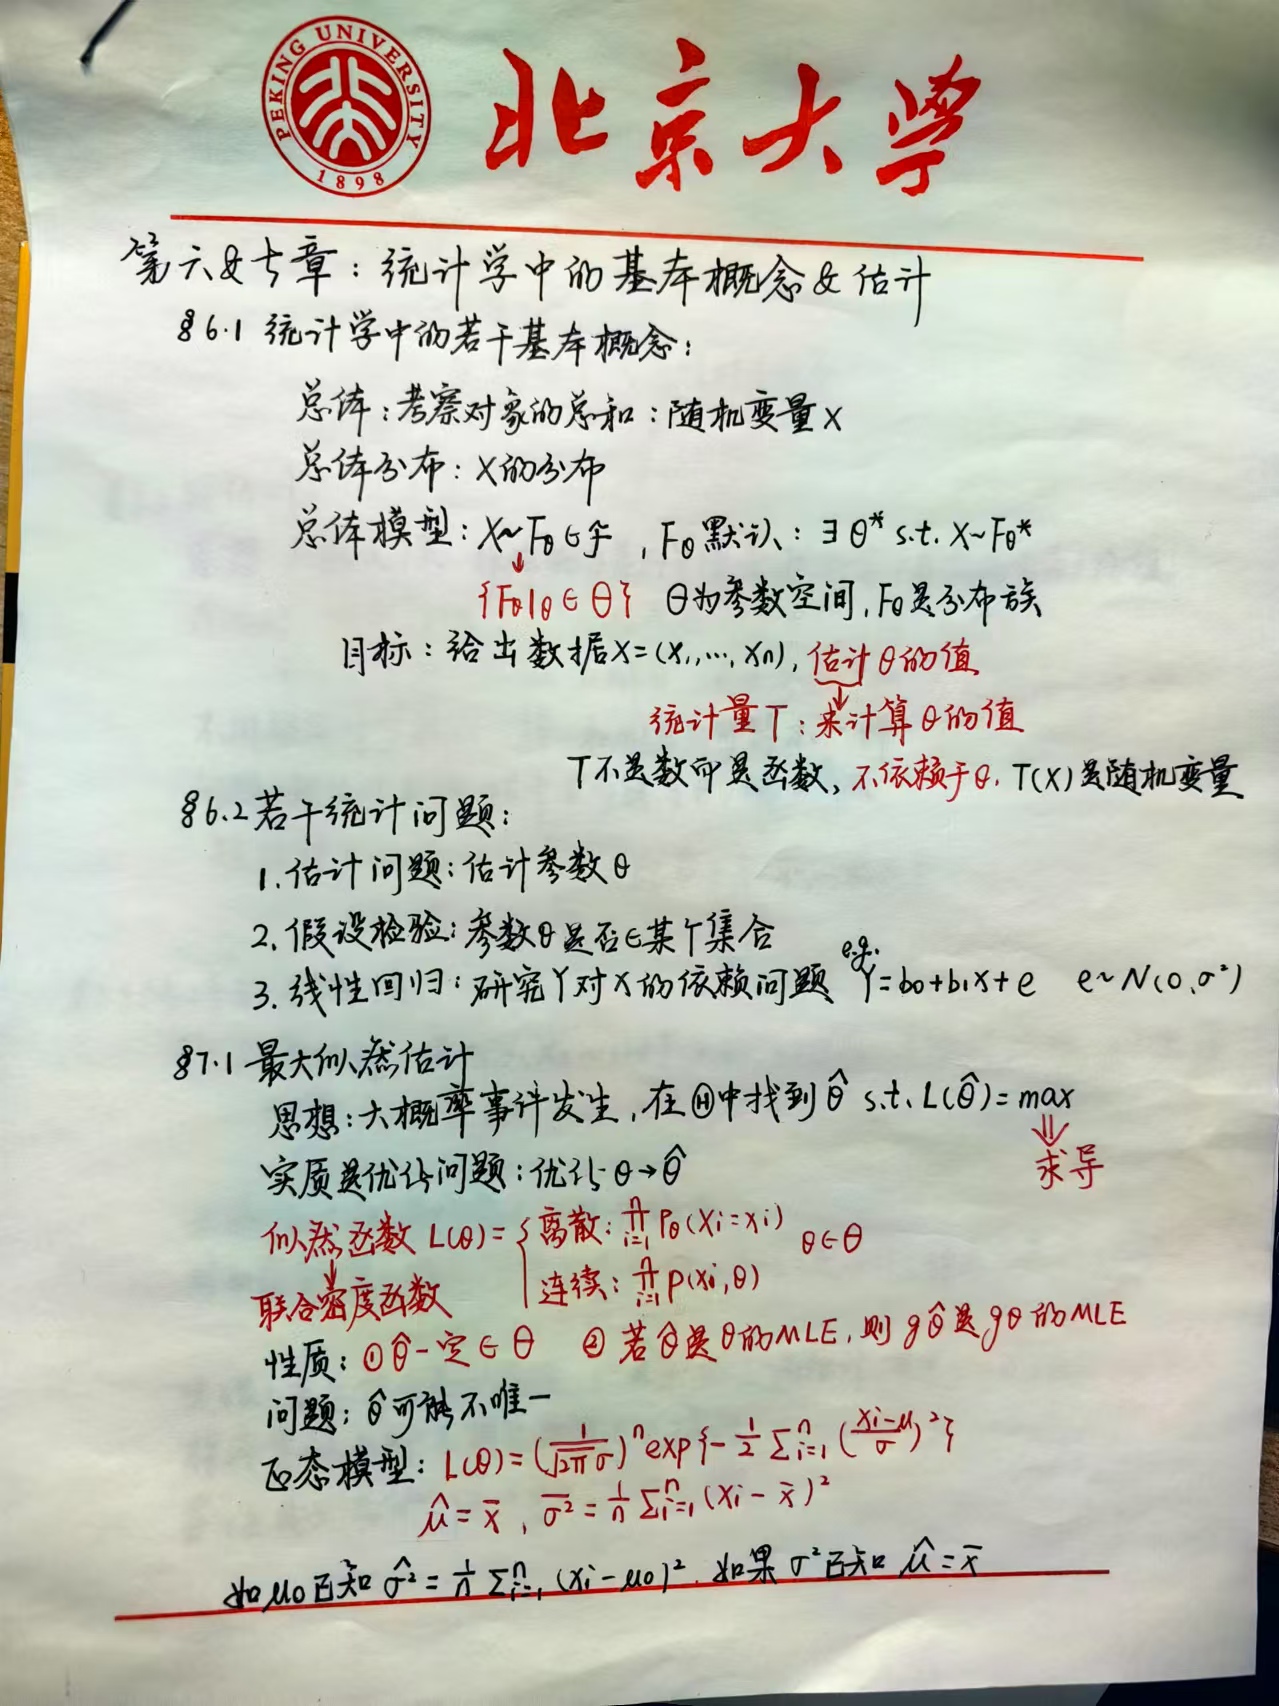 PEKING UNIVERSITY 1898
北京大学
第六&七章：统计学中的基本概念&估计
§6.1 统计学中的若干基本概念：
总体：考察对象的总和：随机变量X
总体分布：X的分布
总体模型：X~Fθ∈ℱ，Fθ默认：∃θ* s.t. X~Fθ*
↓
{Fθ|θ∈Θ} Θ为参数空间，Fθ是分布族
目标：给出数据X=(x₁,…,xn)，估计θ的值
↓
统计量T：来计算θ的值
T不是数而是函数，不依赖于θ. T(X)是随机变量
§6.2 若干统计问题：
1.估计问题：估计参数θ
2.假设检验：参数θ是否∈某个集合
3.线性回归：研究Y对X的依赖问题 e.g. Y=b₀+b₁x+e e~N(0,σ²)
§7.1 最大似然估计
思想：大概率事件发生，在Θ中找到θ̂ s.t. L(θ̂)=max
⇓
实质是优化问题：优化θ→θ̂ 求导
似然函数L(θ)={离散：∏ⁿᵢ₌₁ Pθ(Xi=xi) θ∈Θ
↓
联合密度函数 连续：∏ⁿᵢ₌₁ p(xi,θ)
性质：①θ̂一定∈Θ ②若θ̂是θ的MLE，则gθ̂是gθ的MLE
问题：θ̂可能不唯一
正态模型：L(θ)=(1/√2π σ)ⁿexp{-1/2 Σⁿᵢ₌₁(xi-μ/σ)²}
μ̂=x̄，σ̄²=1/n Σⁿᵢ₌₁(xi-x̄)²
如μ₀已知 σ̂²=1/n Σⁿᵢ₌₁(xi-μ₀)². 如果σ²已知 μ̂=x̄